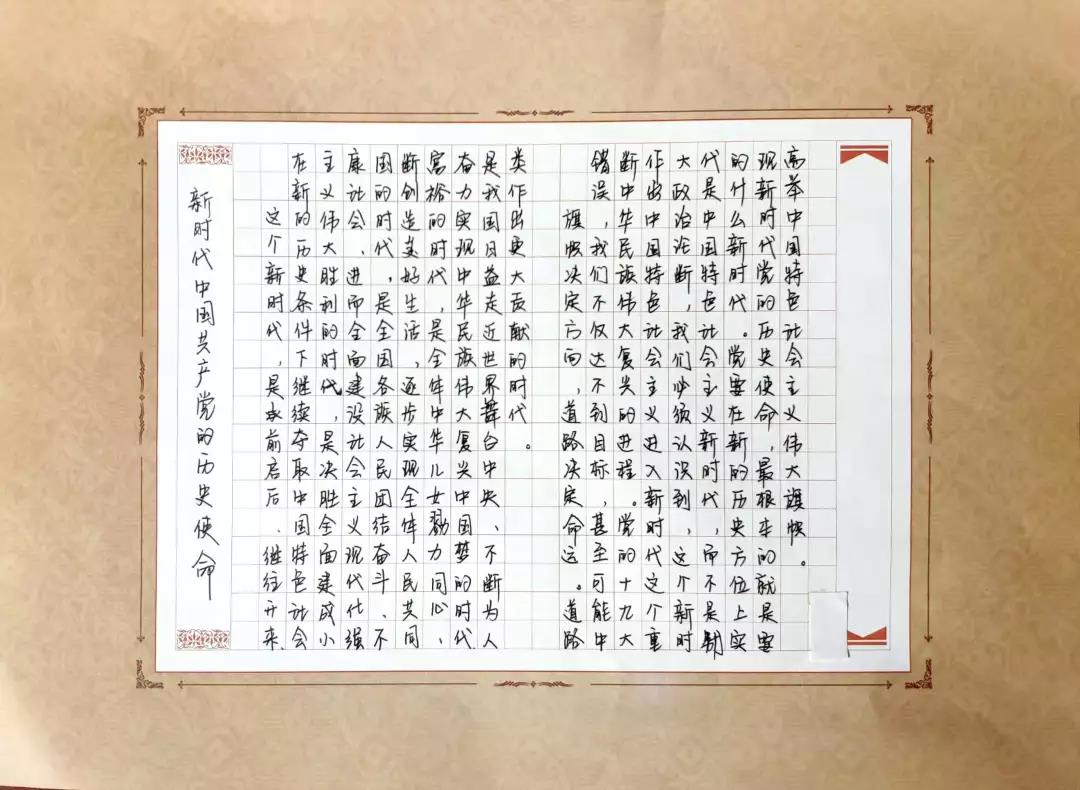 新时代中国共产党的历史使命
这个新时代,是承前启后、继往开来、
在新的历史条件下继续夺取中国特色社会
主义伟大胜利的时代,是决胜全面建成小
康社会、进而全面建设社会主义现代化强
国的时代,是全国各族人民团结奋斗、不
断创造美好生活、逐步实现全体人民共同
富裕的时代,是全体中华儿女勠力同心、
奋力实现中华民族伟大复兴中国梦的时代
是我国日益走近世界舞台中央、不断为人
类作出更大贡献的时代。
旗帜决定方向,道路决定命运。道路
错误,我们不仅达不到目标,甚至可能中
断中华民族伟大复兴的进程。党的十九大
作出中国特色社会主义进入新时代这个重
大政治论断,我们必须认识到,这个新时
代是中国特色社会主义新时代,而不是别
的什么新时代。党要在新的历史方位上实
现新时代党的历史使命,最根本的就是要
高举中国特色社会主义伟大旗帜。